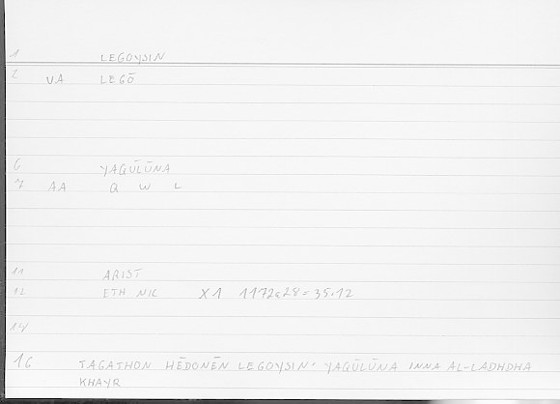 1 LEGOYSIN
2 VA LEGŌ
6 YAQŪLŪNA
7 AA Q W L
11 ARIST
12 ETH NIC X1 1172a28=35.12
14
16 TAGATHON HĒDONĒN LEGOYSIN' YAQŪLŪNA INNA AL-LADHDHA
KHAYR